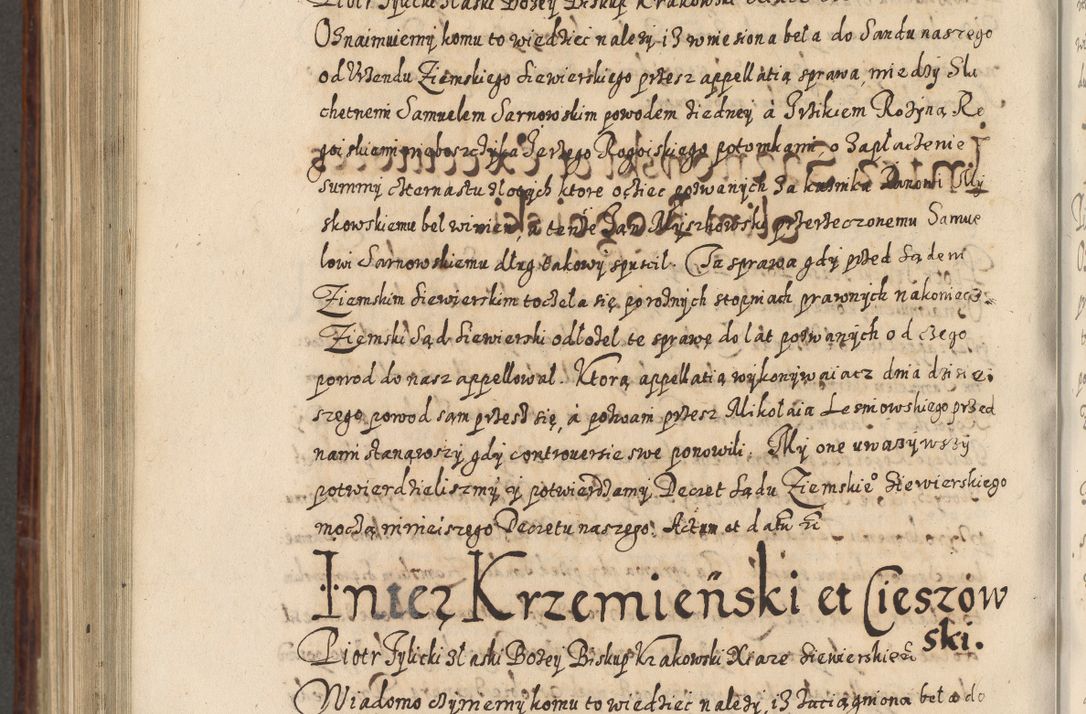 Piotr Tylicki z łaski Bożey Biskup Krakowski
Oznaimuiemy komu to wiedziec nalezy, iz wniesiona beła do Sandu naszego
od Urzendu Ziemskiego Siewierskiego przesz appellatią sprawa, miedzy Sla
chetnem Samuelem Sarnowskim powodem z iedney, a Irzikiem Rozyną Ro
goiskiemi nieboszczyka Jerzego Rogoiskiego potomkami, o zapłaczenie
summy czternastu złotych ktore ocziec pozwanych za Panowi My
skowskiemu bel winien, a tenze Jan Myszkowski przerzeczonemu Samue
lowi Sarnowskiemu dług takowy spuscil. Ta sprawa gdy przed Sądem
Ziemskim Siewierskim toczela się, po roznych stopniach prawnych nakoniecz
Ziemski Sąd Siewierski odłozel te sprawę do lat pozwanych od czego
powod do nasz appellowal. Ktorą appellatią wykonywaiacz dnia dzisiei
szego, powod sam przesz się, a pozwani przesz Mikolaia Lesniowskiego przed
nami stanąwszy, gdy controversie swe ponowili, My one uwazywszy
potwierdzieliszmy, y potwierdzamy Decret Sądu Ziemskieo Siewierskiego
moczą ninieiszego Decretu naszego. Actum et datu etc
Inter Krzemieński et Cieszow
ski.
Piotr Tylicki z łaski Bożey Biskup Krakowski Xiąze Siewierskie etc
Wiadomo czyniemy komu to wiedziec nalezy, iz zaciągniona beła do